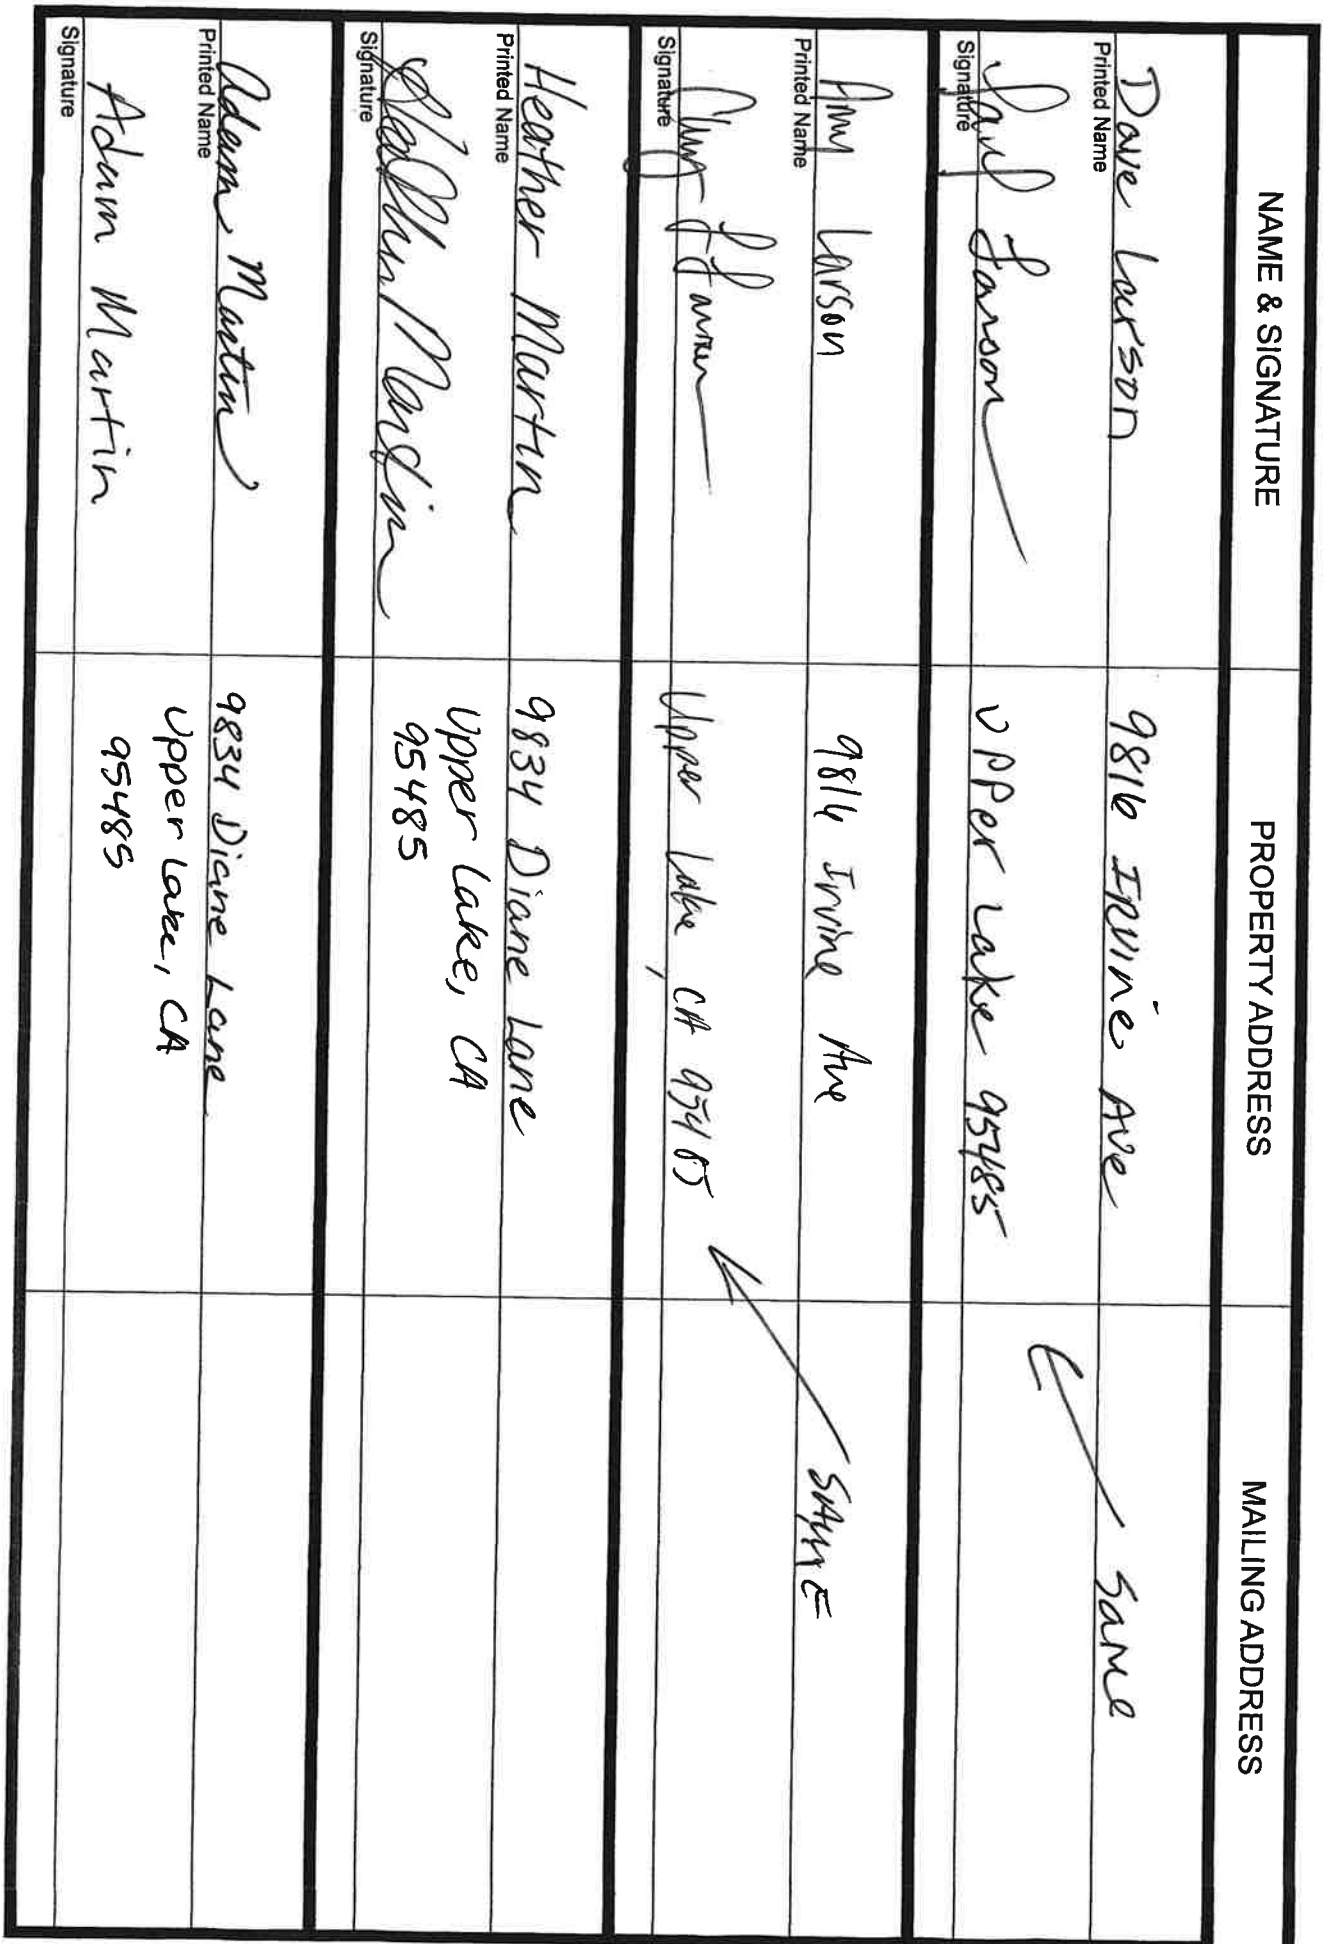 NAME & SIGNATURE
PROPERTY ADDRESS
MAILING ADDRESS
Dave Larson
Printed Name
9816 IRVINE Ave
Same
Signature
Larson
Upper Lake 95485
Amy Larson
Printed Name
9816 Irvine Ave
SAME
Amy
Signature
Upper Lake, CA 95485
Heather Martin
Printed Name
9834 Diane Lane
Heather Martin
Signature
Upper Lake, CA
95485
Adam Martin
Printed Name
9834 Diane Lane
Upper Lake, CA
Adam Martin
Signature
95485